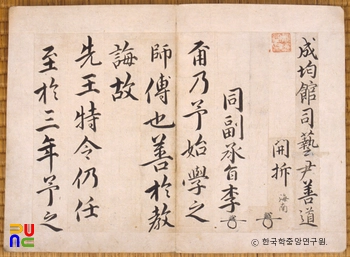 成均館司藝尹善道
開拆
海南
同副承旨李
甭乃予始學之
師傅也善於教
誨故
先王特令仍任
至於三年予之
한국학중앙연구원